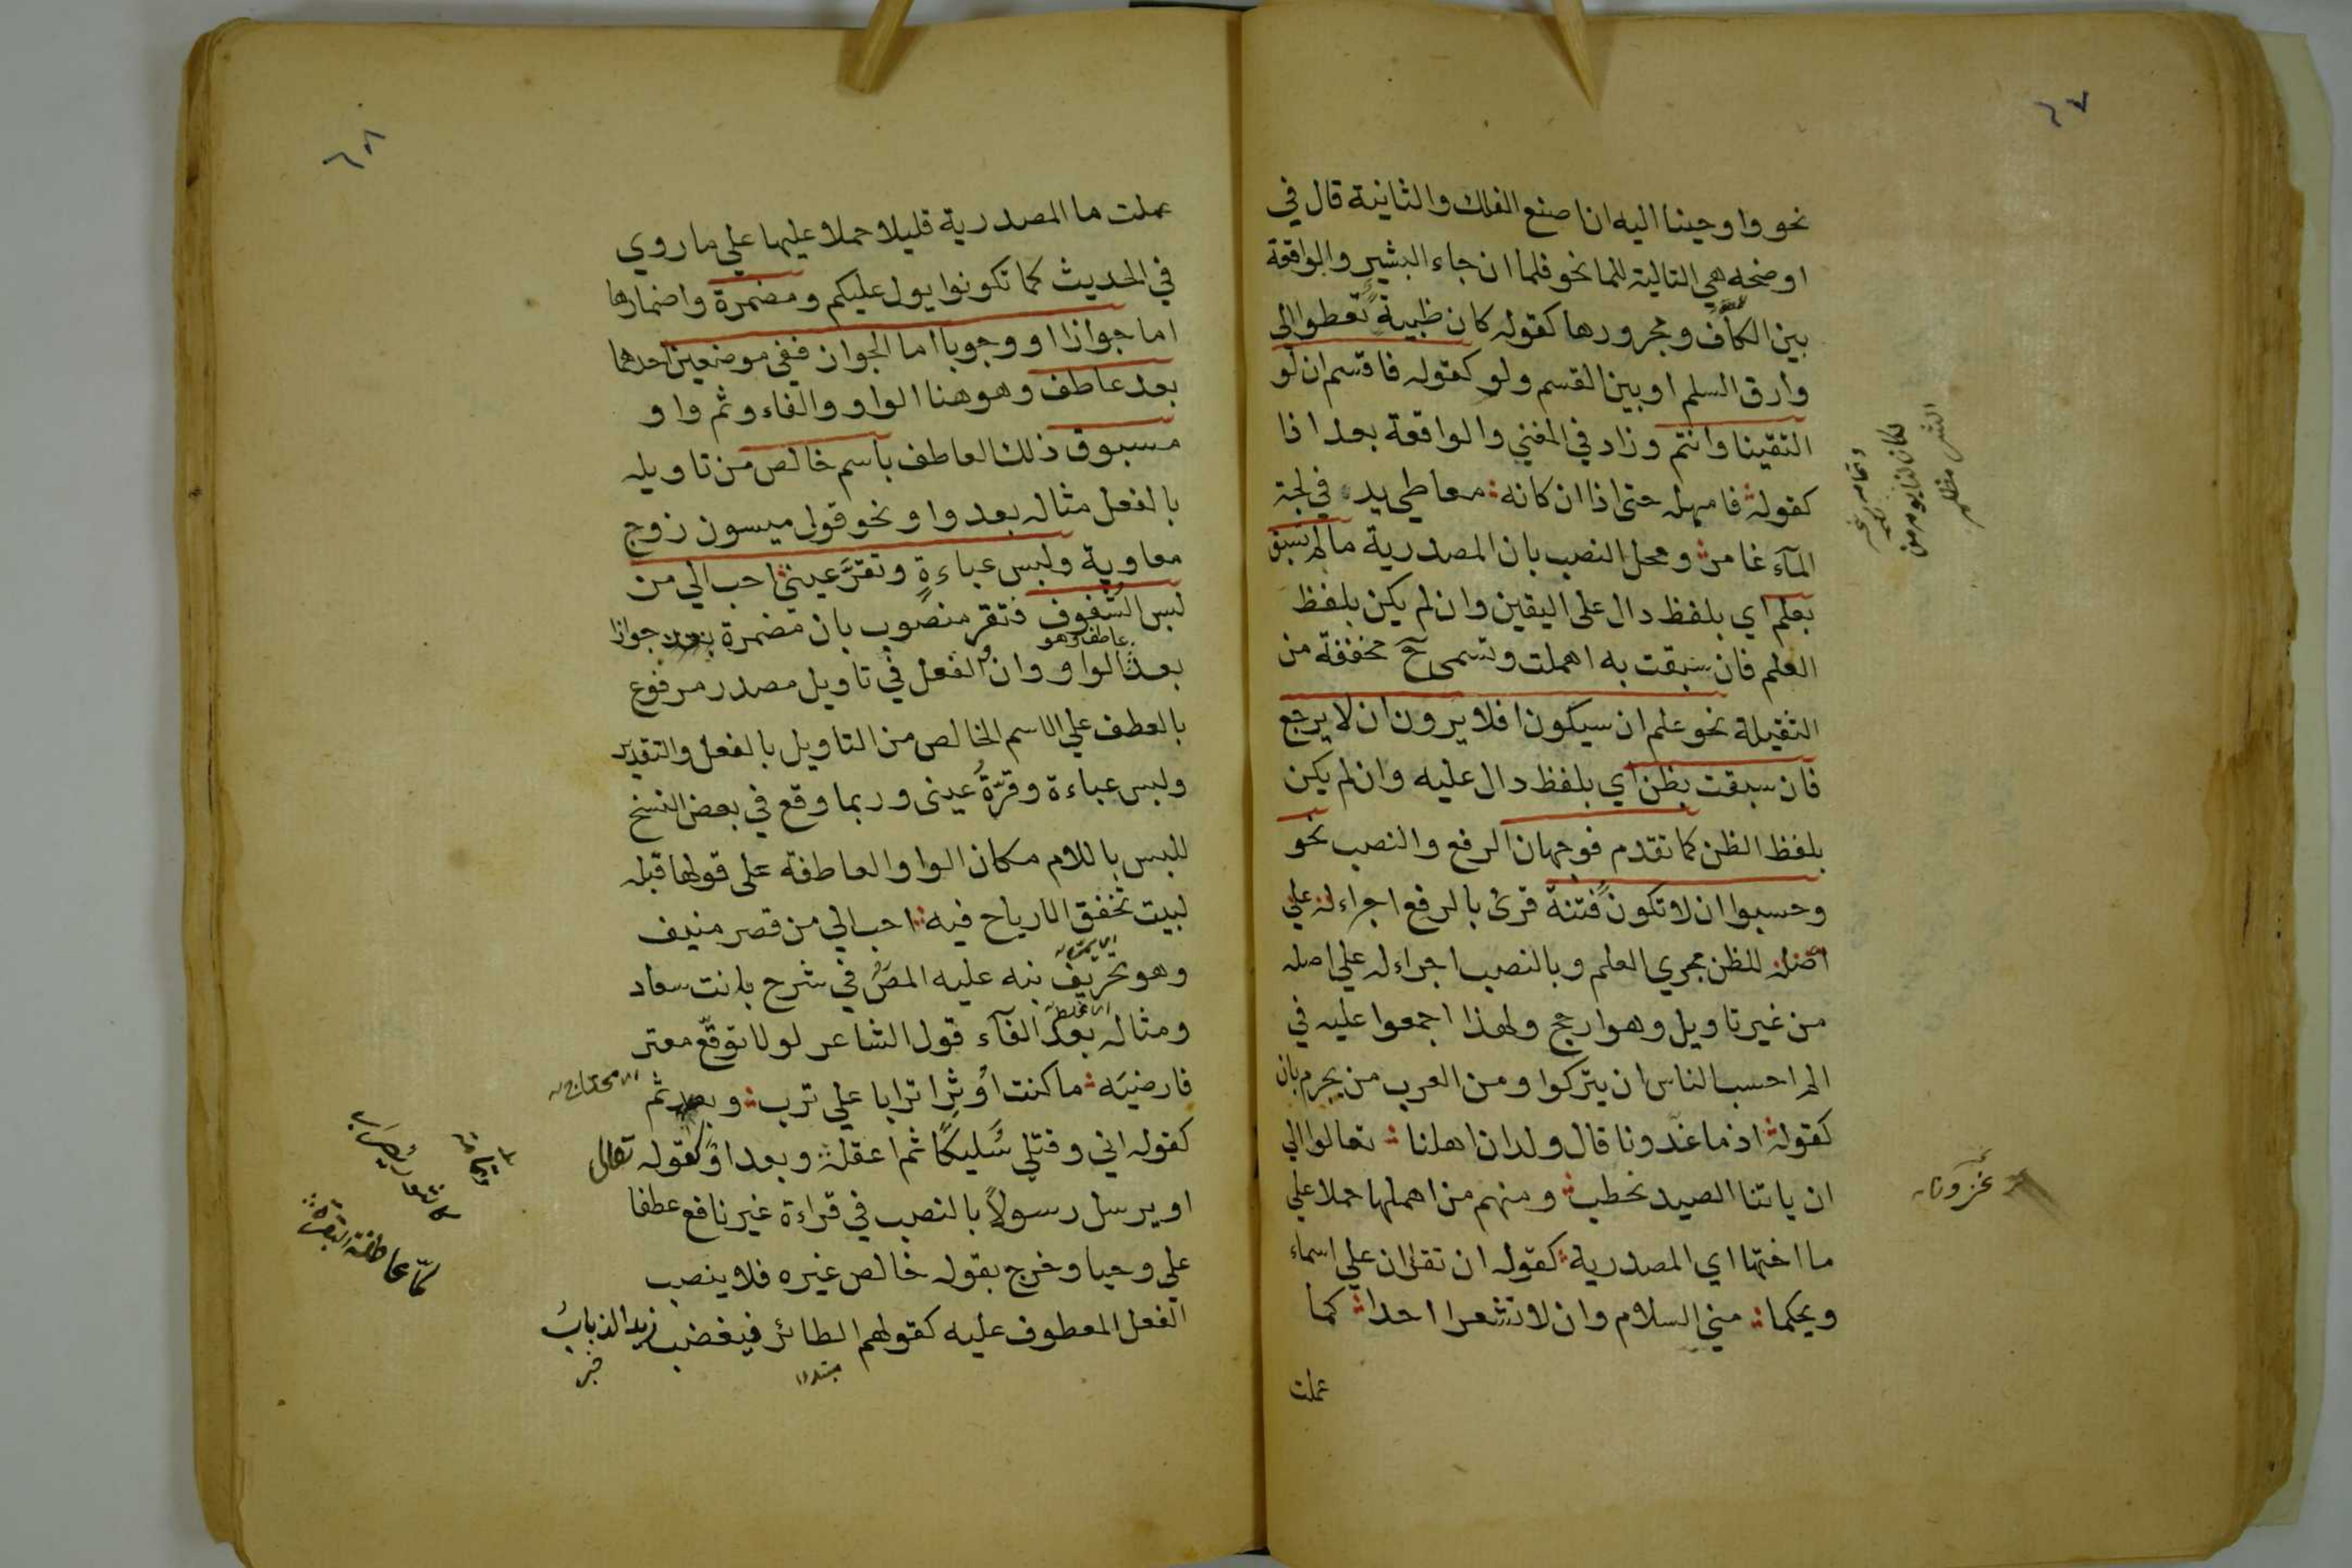 ٦٧
نحو واوحينا اليه ان اصنع الفلك والثانية قال في
اوضحه هي التالية للما نحو فلما ان جاء البشير والواقعة
بين الكاف ومجرورها كقوله كان ظبية تعطوا الى
وارق السلم او بين القسم ولو كقوله فاقسم ان لو
التقينا وانتم وزاد في المغني والواقعة بعد اذا
كقوله فامهله حتى اذا ان كانه معاطي يد في لجة
المآء غامر ومحل النصب بان المصدرية ما لم تسبق
بعلم اي بلفظ دال على اليقين وان لم يكن بلفظ
العلم فان سبقت به اهملت وتسمى ح مخففة من
الثقيلة نحو علم ان سيكون افلا يرون ان لا يرجع
فان سبقت بظن اي بلفظ دال عليه وان لم يكن
بلفظ الظن كما تقدم فوجهان الرفع والنصب نحو
وحسبوا ان لا تكون فتنة قرئ بالرفع اجراء له علي
اصله للظن مجري العلم وبالنصب اجراء له علي اصله
من غير تاويل وهو ارجح ولهذا اجمعوا عليه في
الم احسب الناس ان يتركوا ومن العرب من يجزم بان
كقوله اذ ما غدونا قال ولدان اهلنا تعالوا الي
ان ياتنا الصيد نحطب ومنهم من اهملها حملا علي
ما اختها اي المصدرية كقوله ان تقران علي اسماء
ويحكما مني السلام وان لا تشعرا احدا كما
عملت
وتمامه
لكان لنا يوم من
الشر مظلم
غزونا
٦٨
عملت ما المصدرية قليلا حملا عليها علي ما روي
في الحديث كما تكونوا يول عليكم ومضمرة واضمارها
اما جوازا او وجوبا اما الجواز ففي موضعين احدهما
بعد عاطف وهو هنا الواو والفاء وثم واو
مسبوق ذلك العاطف باسم خالص من تاويله
بالفعل مثاله بعد واو نحو قول ميسون زوج
معاوية ولبس عباءةٍ وتقرَّ عيني احب الي من
لبس الشفوف فتقر منصوب بان مضمرة جوازا
عاطف وهو
بعد الواو وان والفعل في تاويل مصدر مرفوع
بالعطف علي الاسم الخالص من التاويل بالفعل والتقدير
ولبس عباءة وقرّةُ عيني وربما وقع في بعض النسخ
للبس باللام مكان الواو العاطفة على قولها قبله
لبيت تخفق الارياح فيه احب الي من قصر منيف
وهو تحريف نبه عليه المص في شرح بانت سعاد
ومثاله بعد الفآء قول الشاعر لولا توقّع معتر
فارضيَه ما كنت اوثر اترابا علي ترب وبعد ثم
محتاج
كقوله اني وقتلي سُليكًا ثم اعقلَه وبعد او كقوله تعالى
او يرسل رسولاً بالنصب في قراءة غير نافع عطفا
علي وحيا وخرج بقوله خالص غيره فلا ينصب
الفعل المعطوف عليه كقولهم الطائر فيغضب زيد الذبابُ
مبتدا
خبر
وتمامه
كالثور يضرب
لمّا عافت البقر